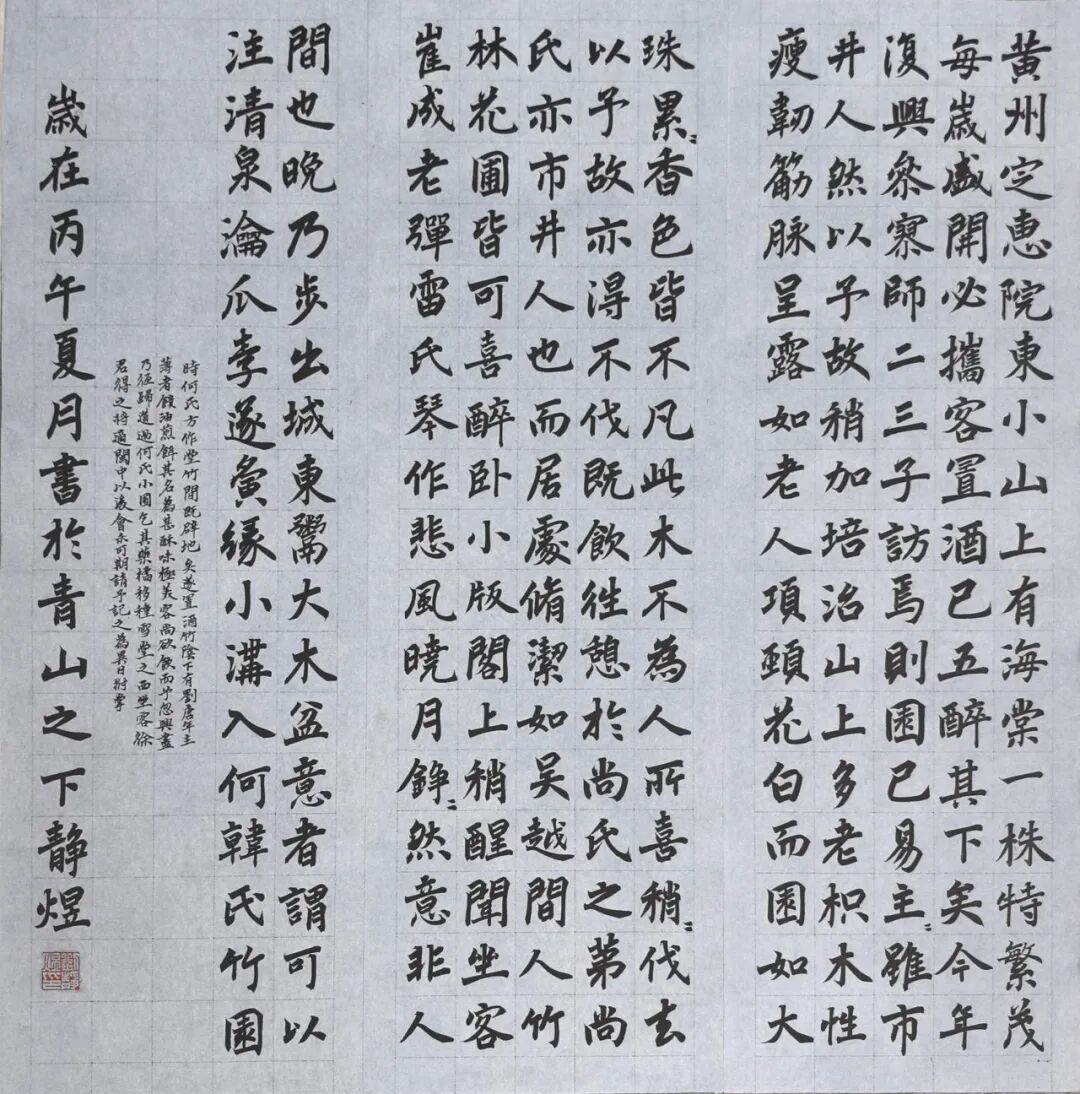 黄州定惠院東小山上有海棠一株特繁茂
每歲盛開必攜客置酒已五醉其下矣今年
復與叅寥師二三子訪焉則園已易主〻雖市
井人然以予故稍加培治山上多老枳木性
瘦韌筋脉呈露如老人項頸花白而圓如大
珠累〻香色皆不凡此木不為人所喜稍〻伐去
以予故亦得不伐既飲往憩於尚氏之第尚
氏亦市井人也而居處脩潔如吴越間人竹
林花圃皆可喜醉卧小版閣上稍醒聞坐客
崔成老彈雷氏琴作悲風曉月錚〻然意非人
間也晚乃步出城東鬻大木盆意者謂可以
注清泉瀹瓜李遂夤緣小溝入何韓氏竹園
時何氏方作堂竹間既辟地矣遂置酒竹陰下有劉唐年主
簿者餽油煎餌其名為甚酥味極美客尚欲飲而予忽興盡
乃徑歸道過何氏小圃乞其藂橘移種雪堂之西坐客徐
君得之將適閩中以後會未可期請予記之為異日拊掌
歲在丙午夏月書於青山之下靜煜